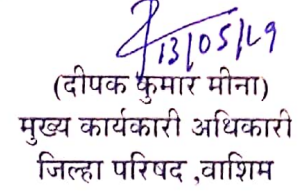 13/05/19
(दीपक कुमार मीना)
मुख्य कार्यकारी अधिकारी
जिल्हा परिषद ,वाशिम